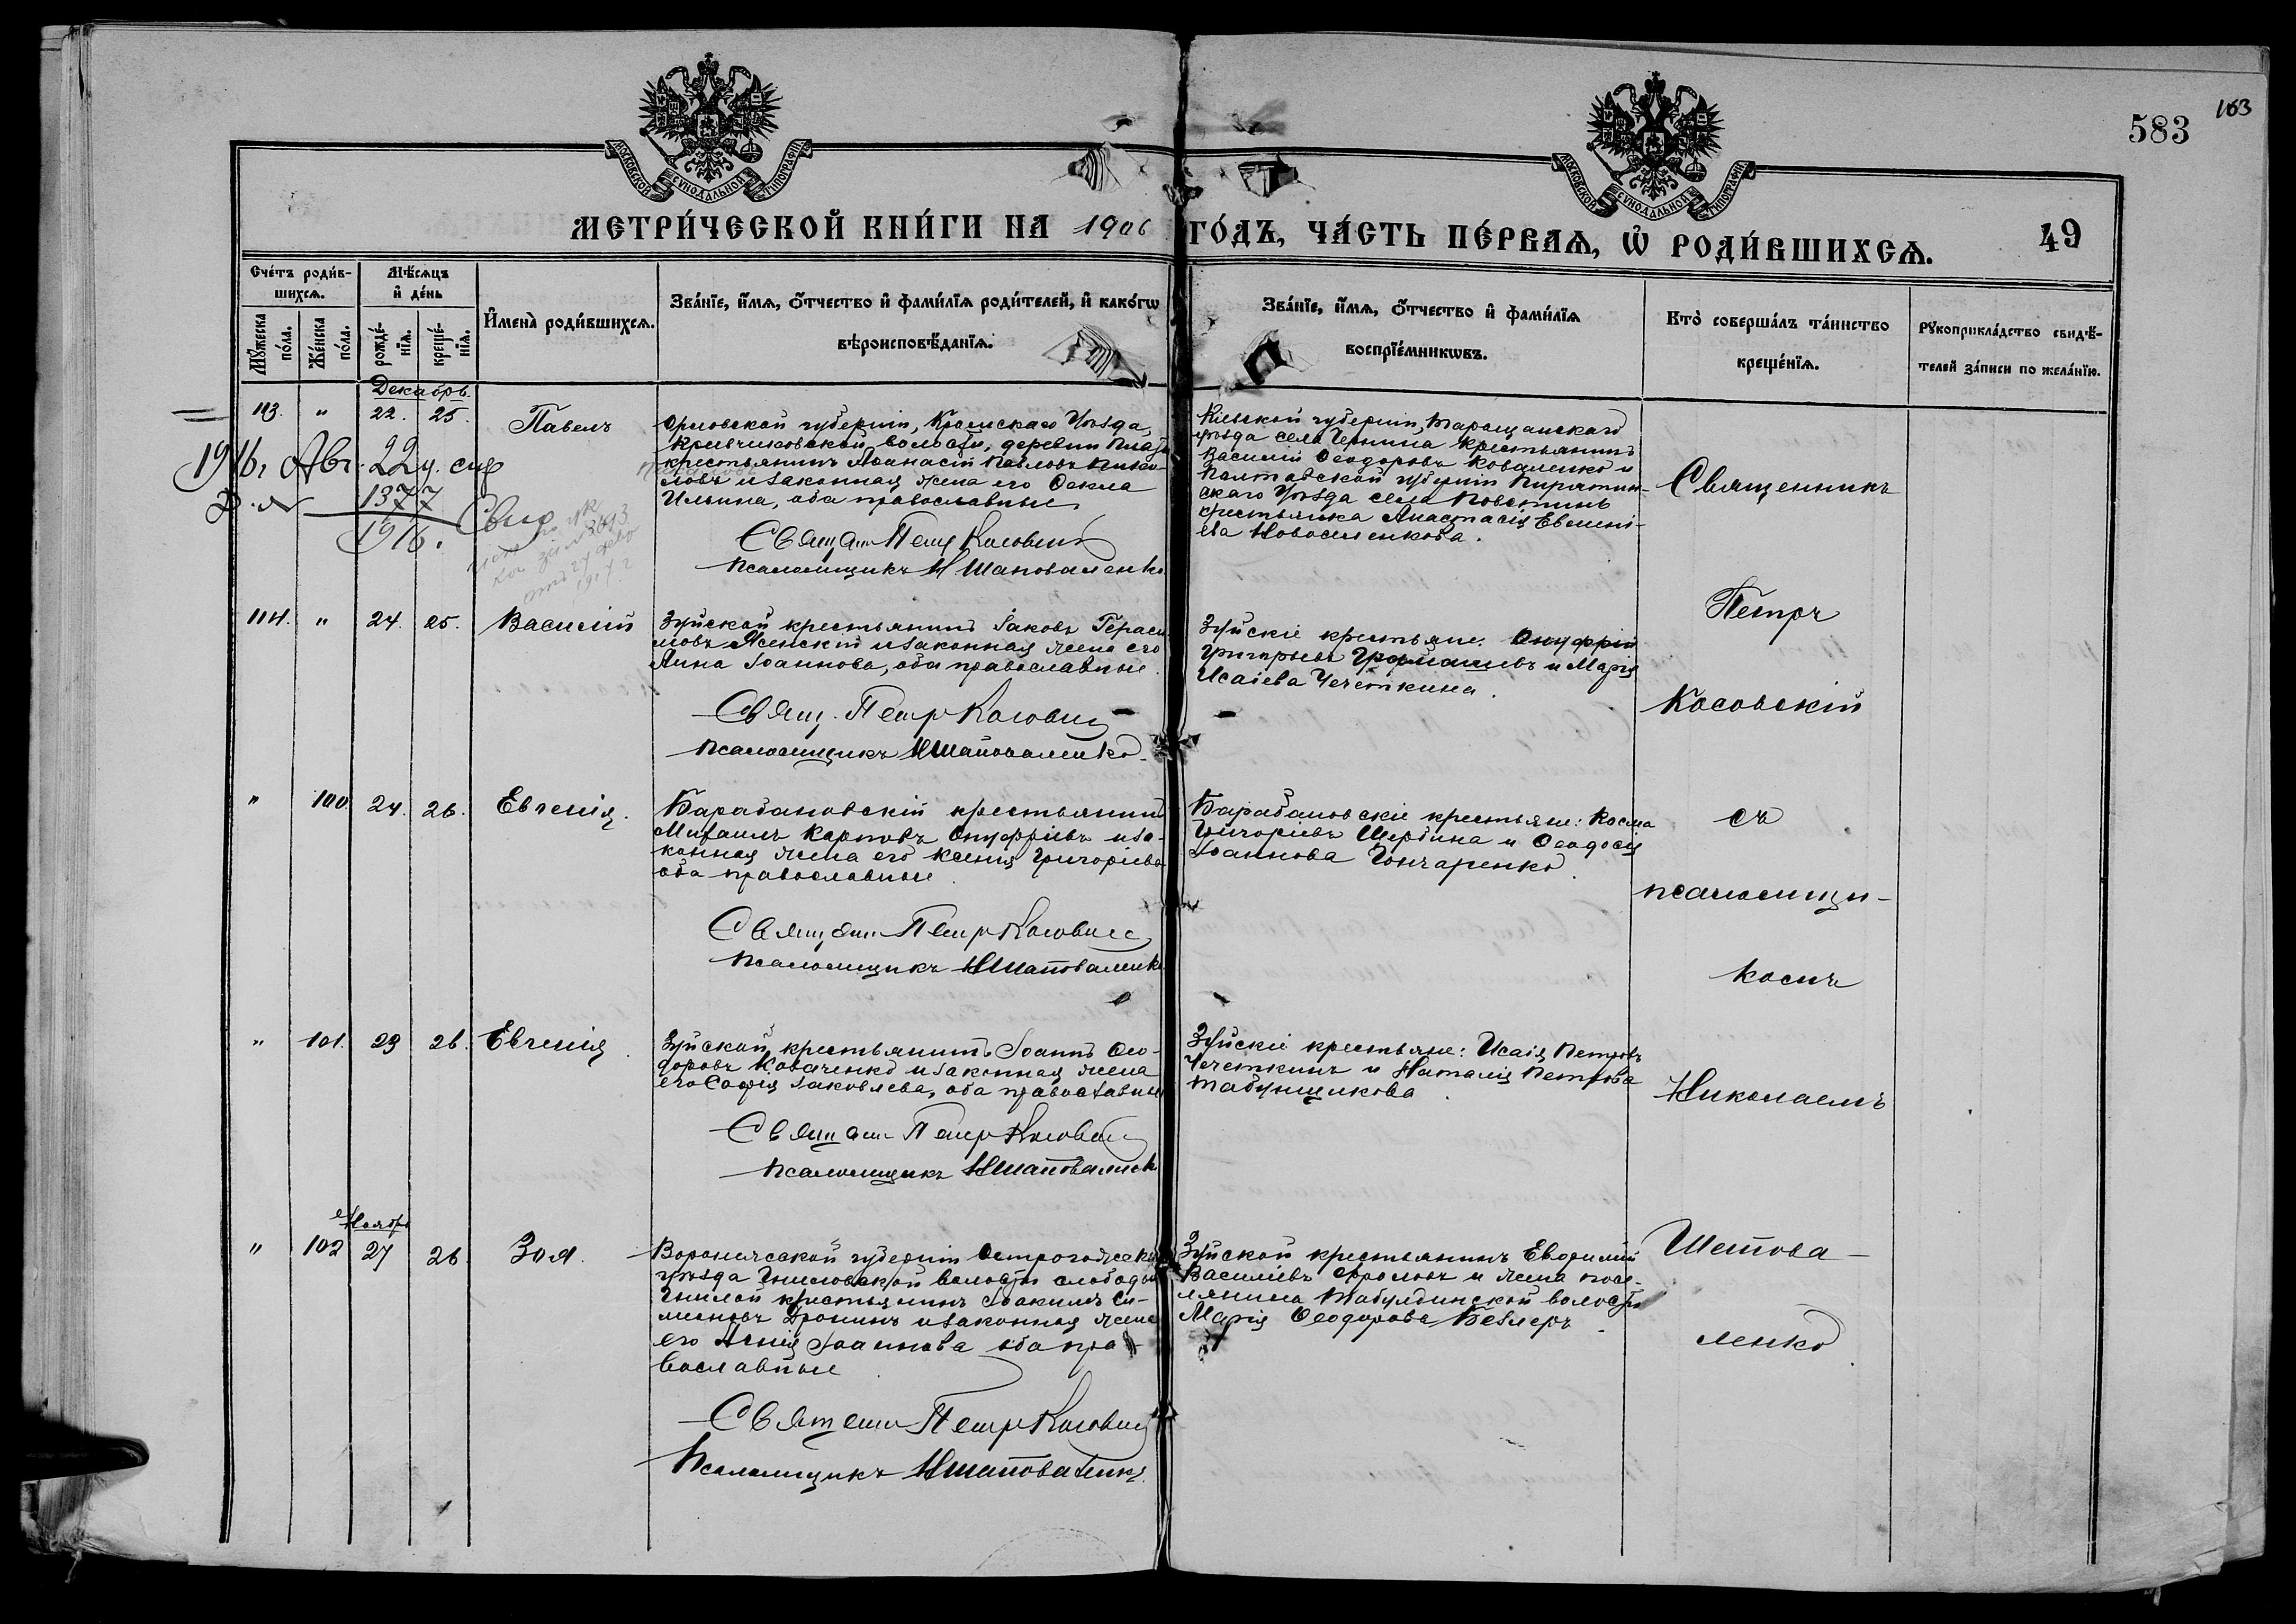 163
583
МОСКОВСКОЙ СѴНОДАЛЬНОЙ ТИПОГРАФІИ
МОСКОВСКОЙ СѴНОДАЛЬНОЙ ТИПОГРАФІИ
МЕТРИ́ЧЕСКОЙ КНИ́ГИ НА 1906 ГО́ДЪ, ЧА́СТЬ ПЕ́РВАѦ, Ѡ҆ РОДИ́ВШИХСѦ.
49
Сче́тъ роди́в-
шихсѧ.
Мѣ́сѧцъ
и҆ де́нь
Мꙋ́жеска
по́ла.
Же́нска
по́ла.
рожде́-
нїѧ.
креще́-
нїѧ.
И҆мена̀ роди́вшихсѧ.
Зва́нїе, и҆́мѧ, ѻ҆́тчество и҆ фами́лїѧ роди́телей, и҆ како́гѡ
вѣроисповѣ́данїѧ.
Зва́нїе, и҆́мѧ, ѻ҆́тчество и҆ фами́лїѧ
воспрїе́мникѡвъ.
Кто̀ соверша́лъ та́инство
креще́нїѧ.
Рꙋкоприкла́дство свидѣ́-
телей за́писи по жела́нїю.
Декабрь.
113. " 22. 25. Павелъ
Орловской губерніи, Кромскаго Уѣзда,
Кривчиковской волости, деревни
крестьянинъ Аѳанасій Павловъ
и законная жена его Ѳекла
Ильина, оба православные
Священ Петръ Косовскій
Псаломщикъ Н Шаповаленко
Кіевской губерніи, Таращанскаго
уѣзда села Чернина крестьянинъ
Василій Ѳеодоровъ Коваленко и
Полтавской губерніи Пирятин-
скаго Уѣзда села Повстинъ
крестьянка Анастасія Евгеніе-
ва Новоселенкова.
1916 г. Авг. 22 д.
1377
1916.
1917 г
114. " 24. 25. Василій
Зуйской крестьянинъ Іаковъ Гераси-
мовъ Ясенскій и законная жена его
Анна Іоаннова, оба православные.
Свящ. Петръ Косовскій
Псаломщикъ НШаповаленко.
Зуйскіе крестьяне: Онуфрій
Григорьевъ и Марія
Исаіева Чечеткина.
" 100. 24. 26. Евгенія.
Барабановскій крестьянинъ
Михаилъ Карповъ Онуфріевъ и за-
конная жена его Ксенія Григоріева
оба православные.
Священ Петръ Косовскій
Псаломщикъ НШаповаленко
Барабановскіе крестьяне: Косма
Григоріевъ Щербина и Ѳеодосія
Іоаннова Гончаренко.
" 101. 23 26. Евгенія.
Зуйской крестьянинъ Іоаннъ Ѳео-
доровъ Коваченко и законная жена
его Софія Іаковлева, оба православные
Священ Петръ Косовскій
Псаломщикъ НШаповаленко
Зуйскіе крестьяне: Исаія Петровъ
Чечеткинъ и Наталія Петрова
Табунщикова.
Ноябрь
" 102 27 26. Зоя.
Воронежской губерніи Острогожскаго
уѣзда Гниловской волости слободы
Гнилой крестьянинъ Іоакимъ Си-
меоновъ Дронинъ и законная жена
его Іоаннова оба пра-
вославные.
Священ Петръ Косовскій
Псаломщикъ НШаповаленко.
Зуйской крестьянинъ Евфимій
Василіевъ Фроловъ и жена посе-
лянина Табулдинской волости
Марія Ѳеодорова Безлеръ.
Священникъ
Петръ
Косовскій
съ
псаломщи-
комъ
Николаемъ
Шапова-
ленко.